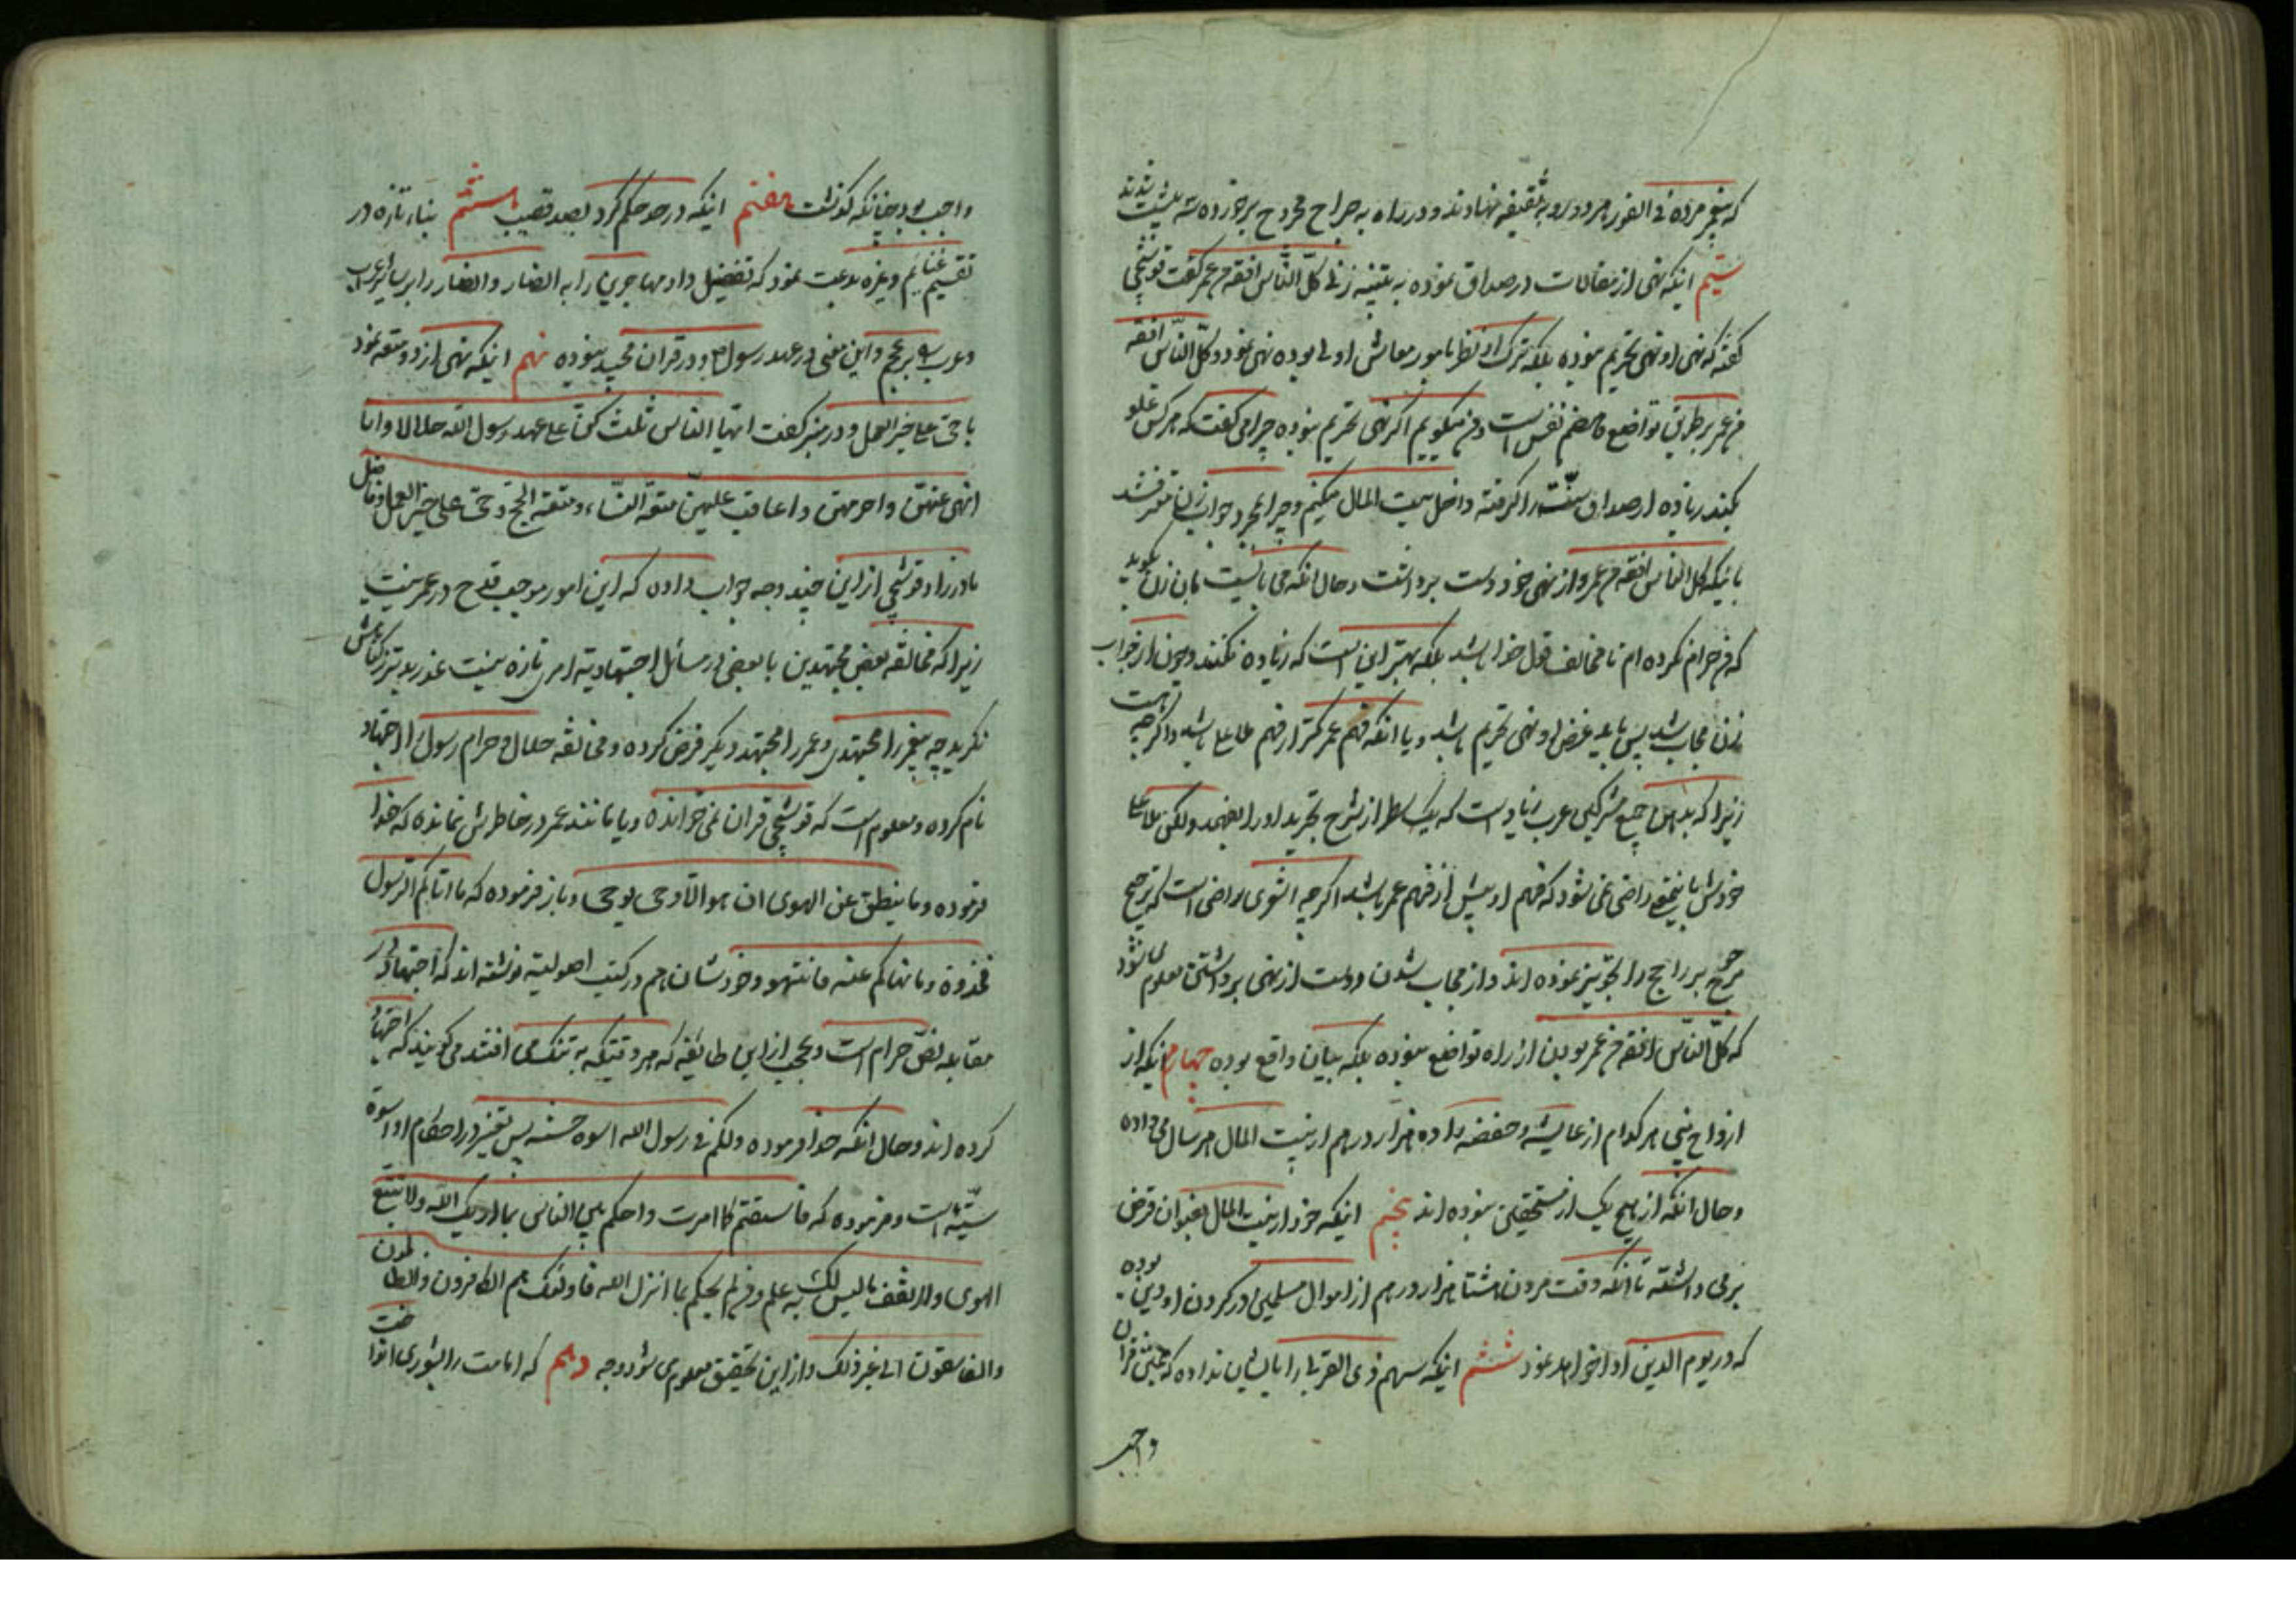 که پیغمبر مرده فی الفور هر دو رو به سقیفه نهادند و در راه به جراح مجروح برخورده سه پشت شدند
سیم اینکه نهی از مغالات در صداق نموده به تنبیه زنی کل الناس افقه من عمر گفت قوشچی
گفته که نهی او نهی تحریم نبوده بلکه ترک اولی نظر بامور معاش اولی بوده نهی نمود و کل الناس افقه
من عمر بر طریق تواضع و هضم نفس است و من میگویم اگر نهی تحریم نبوده چرا می گفت که هر کس غلو
کند زیاده از صداق سنت را گرفته داخل بیت المال میکنم و چرا بمجرد جواب زن متعرض نشد
بانیکه کل الناس افقه من عمر و از نهی خود دست برداشت و حال انکه می بایست بان زن بگوید
که من حرام نکرده ام تا مخالف قول خدا باشد بلکه بهتر این است که زیاده نکنند و چون از جواب
زن مجاب شد پس باید غرض او نهی تحریم باشد و یا انکه فهم عمر کمتر از فهم ملا علی باشد و اگر چه
زیرا که بد اهل جمیع مشرکین عرب زیاد است که یک سطر از شرح تجرید او را نفهمد ولکن ملا علی
خودش باین معنی راضی نمی شود که فهم او بیش از فهم عمر باشد اگر چه اشعری راضی است که ترجیح
مرجوح بر راجح را تجویز نموده اند و از مجاب شدن و دست از نهی برداشتن معلوم می شود
که کل الناس افقه من عمر بودن از راه تواضع نبوده بلکه بیان واقع بوده چهارم اینکه از
ازواج نبی هر کدام از عایشه و حفصه را ده هزار درهم از بیت المال هر سال می داده
و حال انکه از هیچ یک از مستحقین نبوده اند پنجم اینکه خود از بیت المال بعنوان قرض
برمی داشته تا انکه وقت مردن هشتاد هزار درهم از اموال مسلمین در گردن او دین بوده
که در یوم الدین ادا خواهد نمود ششم اینکه سهم ذی القربی را بایشان نداده که بنص قران
واجب
واجب بود چنانکه گذشت هفتم اینکه در حد حکم کرد بصد قضیب هشتم بناء تازه در
تقسیم غنایم و غیره بدعت نمود که تفضیل داد مهاجرین را به انصار و انصار را بر سائر عرب
و عرب را بر عجم و این معنی در عهد رسول و در قران مجید نبوده نهم اینکه نهی از دو متعه نمود
با حی علی خیر العمل و در منبر گفت ایها الناس ثلث کن علی عهد رسول الله حلالا و انا
انهی عنهن و احرمهن و اعاقب علیهن متعة النساء و متعة الحج و حی علی خیر العمل و فاضل
مادرزاد قوشچی از این چند وجه جواب داده که این امور موجب قدح در عمر نیست
زیرا که مخالفه بعض مجتهدین با بعضی در مسائل اجتهادیه امر تازه نیست عذر بدتر از گناهش
نگرید چه پیغمبر را مجتهدی و عمر را مجتهد دیگر فرض کرده و مخالفه حلال و حرام رسول را اجتهاد
نام کرده و معلوم است که قوشچی قران نمی خوانده و یا مانند عمر در خاطرش نمانده که خدا
فرموده و ما ینطق عن الهوی ان هو الا وحی یوحی و باز فرموده که ما اتاکم الرسول
فخذوه و ما نهاکم عنه فانتهوا و خودشان هم در کتب اصولیه نوشته اند که اجتهاد در
مقابله نص حرام است و عجب از این طایفه که هر وقتیکه به تنگ می افتند می گویند که اجتهاد
کرده اند و حال انکه خدا فرموده و لکم فی رسول الله اسوة حسنه پس تغییر در احکام او اسوة
سیئه است و فرموده که فاستقم کما امرت و احکم بین الناس بما اریک الله و لا تتبع
الهوی و لا تقف ما لیس لک به علم و من لم یحکم بما انزل الله فاولئک هم الکافرون و الظالمون
و الفاسقون الی غیر ذلک و از این تحقیق معلوم می شود وجه دهم که امامت را بشوری انداخت